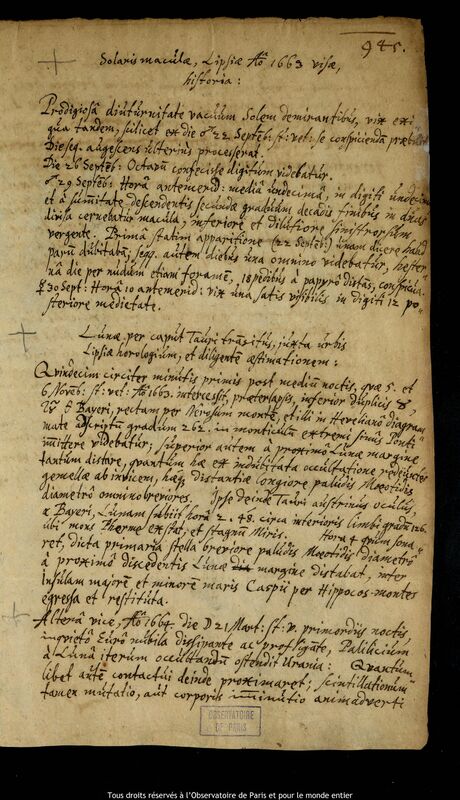 945.
Solaris maculæ, Lipsiæ Aô 1663 visæ,
historia:
Prodigiosâ diuturnitate vacuum Solem demirantibus, vix exi
gua tandem, scilicet ex die ♂ 22 Septêb: st: vet: se conspiciendâ præbuit
Die seq. augescens ulterius processerat.
Die 26 Septêb: Octavû confecisse digitum videbatur.
♂ 29 Septêb: Horâ antemerid: mediâ undecimâ, in digiti undecimi
et à sumitate descendentis secundæ graduum decadis finibus in duas
divisa cernebatur macula, inferiore et dilutiore sinistrorsum
vergente. Primâ statim apparitione (22 Septêb:) unam ducere haud
parum dubitabâ, seq. autem diebus una omnino videbatur, hester
nâ die per nudum etiam foramê, 18 pedibus à papyro distâs, conspicua.
☿ 30 Sept: Horâ 10 antemerid: vix una satis visibilis in digiti 12 po
steriore medietate.
Lunæ per caput Tauri trâsitus, juxta urbis
Lipsiæ horologium, et diligentê æstimationem:
Quindecim circiter minutis primis post mediû noctis, quæ 5. et
6 Novêb: st: vet: Aô 1663. intercessit, præterlapsis, inferior duplicis ♉,
Bayeri, rectam per Nerosum montê, et illi in Heveliano diagram
mate adscriptû gradum 262. in monticulû extremi sinûs Ponti
imittere videbatur; superior autem à proximo Lunæ margine
tantum distare, quantum hæ ex indubitata occultatione redeuntes
gemellæ ab invicem, hâc distantiæ longiore paludis Mæotidis
diametrô omnino breviores. Ipse deinde Tauri austrinus oculus,
α Bayeri, Lunam subiit horâ 2. 48. circa interioris limbi gradû 126.
ubi mons Pherme extat, et stagnû Miris. Hora 4 quum sona
ret, dicta primaria stella breviore paludis Mæotidis diametrô
à proximo discedentis Lunæ margine distabat, inter
Insulam majorê et minorê maris Caspii per Hippocos montes
egressa et restituta.
Alterâ vice, Aô 1664. die ☽ 21 Mart: st: v. primordiis noctis,
inquieto Euro nubila dissipante ac profligate, Palilicium
à Lunâ iterum occultandû ostendit Urania: Quantum
libet autê contactui deinde proximaret; scintillationum
tamen mutatio, aut corporis imminutio animadverti
OBSERVATOIRE
DE PARIS
Tous droits réservés à l'Observatoire de Paris et pour le monde entier